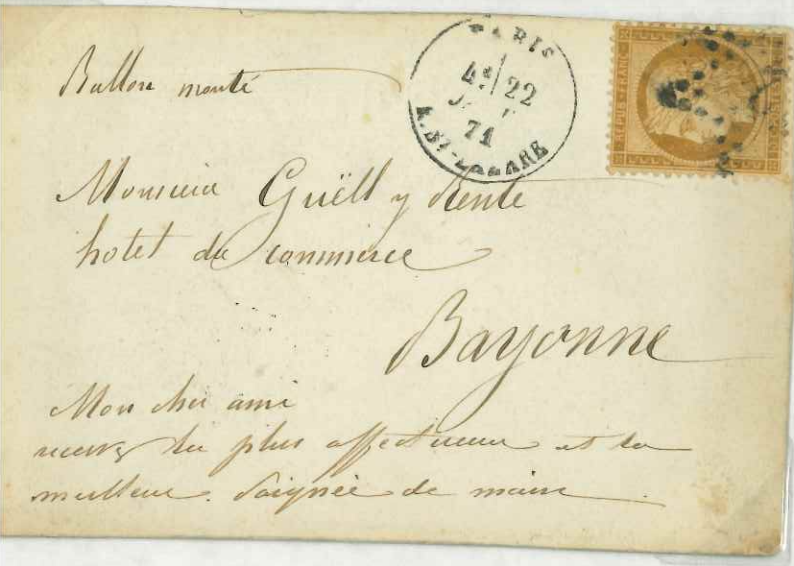 Ballon monté
PARIS
4E 22
JANV
71
R. ST-LAZARE
REPUB. FRANC.
Monsieur Guëll y Rente
hotel du commerce
Bayonne
Mon cher ami
recevez la plus affectueuse et la
meilleure. Poignée de main